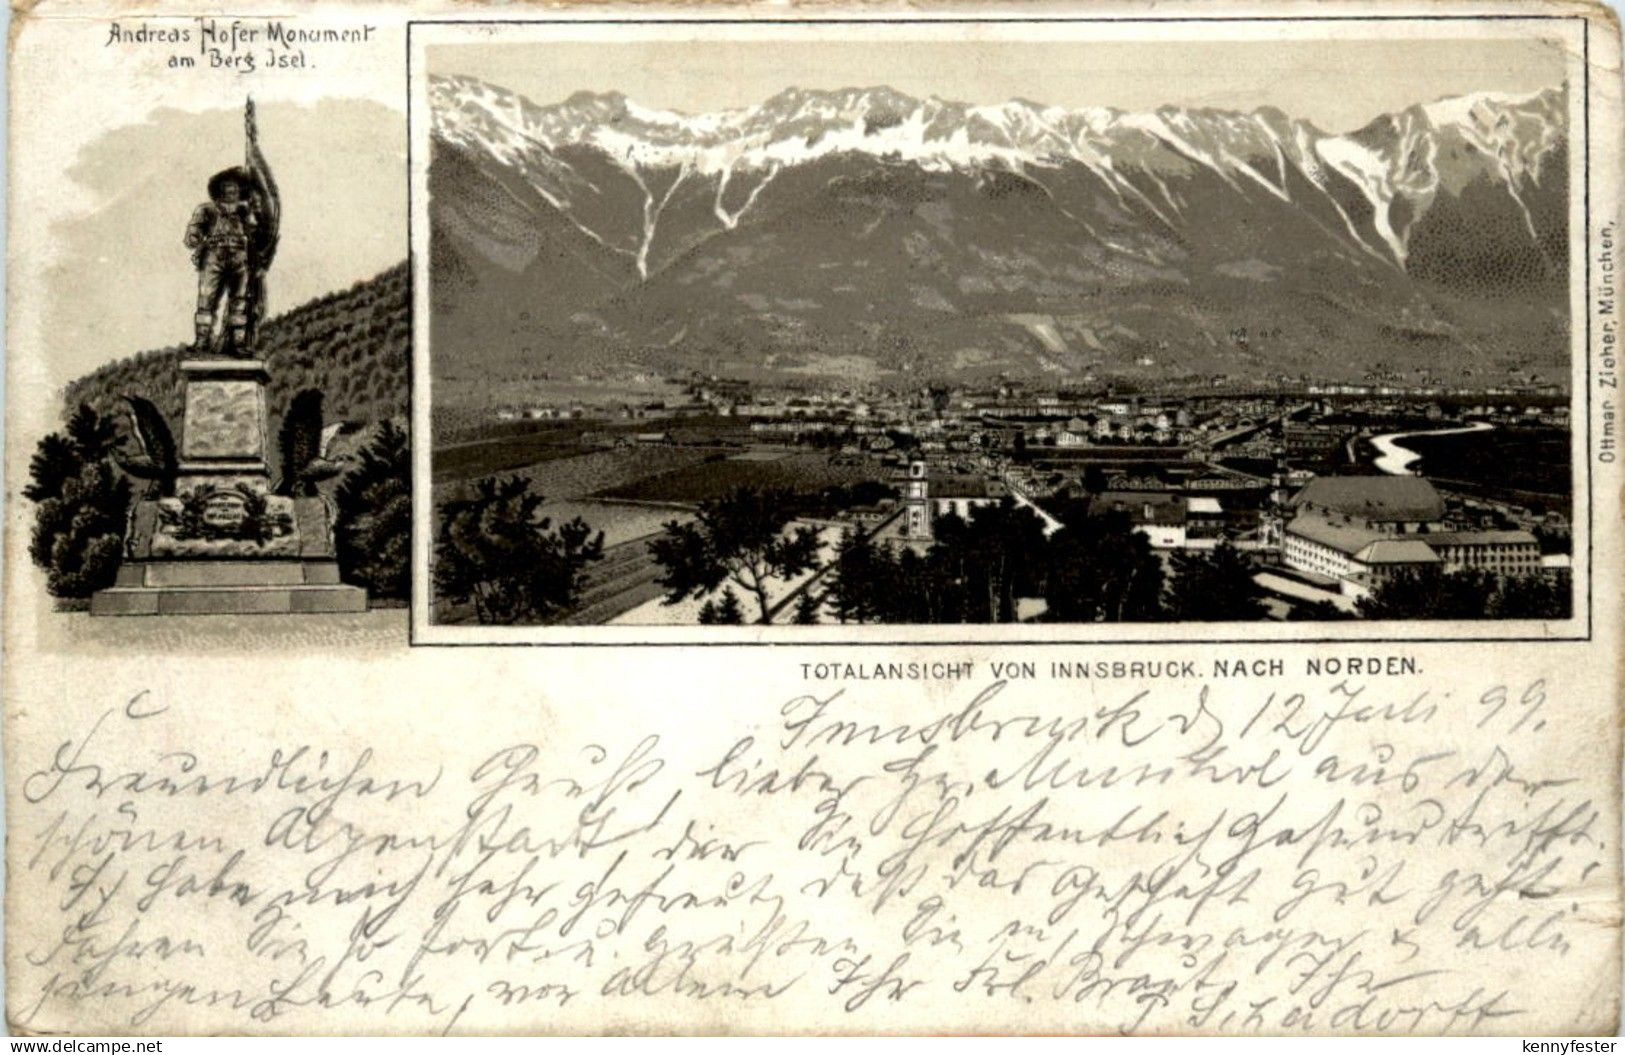 Andreas Hofer Monument
am Berg Isel.
Ottmar Zieher, München,
TOTALANSICHT VON INNSBRUCK. NACH NORDEN.
Innsbruck d 12 Juli 99.
Freundlichen Gruß, lieber Hr. aus der
schönen Alpenstadt, der Sie hoffentlich Gesund trifft.
Ich habe mich sehr gefreut, daß das Geschäft gut geht!
Fahren Sie so fort u. grüßen Sie m. Schwager & alle
jungen Leute, vor Allem Ihr Frl. Braut. Ihr
F. Schadorff
www.delcampe.com
kennyfester